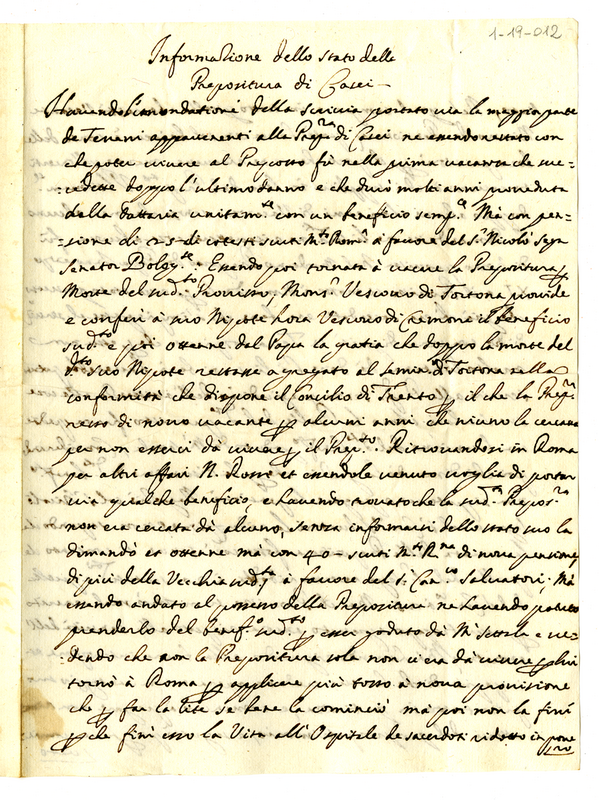 1-19-012
Informatione dello stato della
Prepositura di Casei
Havendo l'inondatione della scrivia portato via la maggior parte
de Terreni appartenenti alla Prep.ra di Casei ne essendo restato con
che poter vivere al Preposto fù nella prima vacanza che suc=
=cedesse doppo l'ultimo danno e che durò molti anni proveduta
della Dattaria unitam.te con un beneficio semp.e Mà con pen=
=sione di 25 di cotesti scuti m.ta Rom.a à favore del S.r Nicolò
Senator Essendo poi tornata à vacare la Prepositura p
Morte del sud.to Provisto, Mons.r Vescovo di Tortona providde
e conferì à suo Nipote hora Vescovo di Cremona il beneficio
sud.to e poi ottenne dal Papa la gratia che doppo la morte del
d.to suo Nipote restasse agregato al semin.o di Tortona nella
conformità che dispone il Concilio di Trento, il che la Prep.ra
restò di novo vacante p alcuni anni che niuno la cercava
per non esserci dà vivere p il Prep.to. Ritrovandosi in Roma
per altri affari N. Rossi et essendole venuto voglia di portar
via qualche beneficio, e havendo trovato che la sud.ta Prepos.ra
non era cercata dà alcuno, senza informarsi dello stato suo la
dimandò et ottenne mà con 40 scuti m.ta R.na di nova pensione
di più della Vecchia sud.ta à favore del S. Can.co Salvatori; Mà
essendo andato al possesso della Prepositura ne havendo potuto
prenderlo del benef.o sud.to p esser goduto dà N. e ve=
=dendo che con la Prepositura sola non ci era dà vivere p lui
tornò à Roma p applicare più tosto à nova provisione
che p far la lite se bene la cominciò mà poi non la finì
p che finì esso la Vita all'Ospitale de sacerdoti ridotto in pove